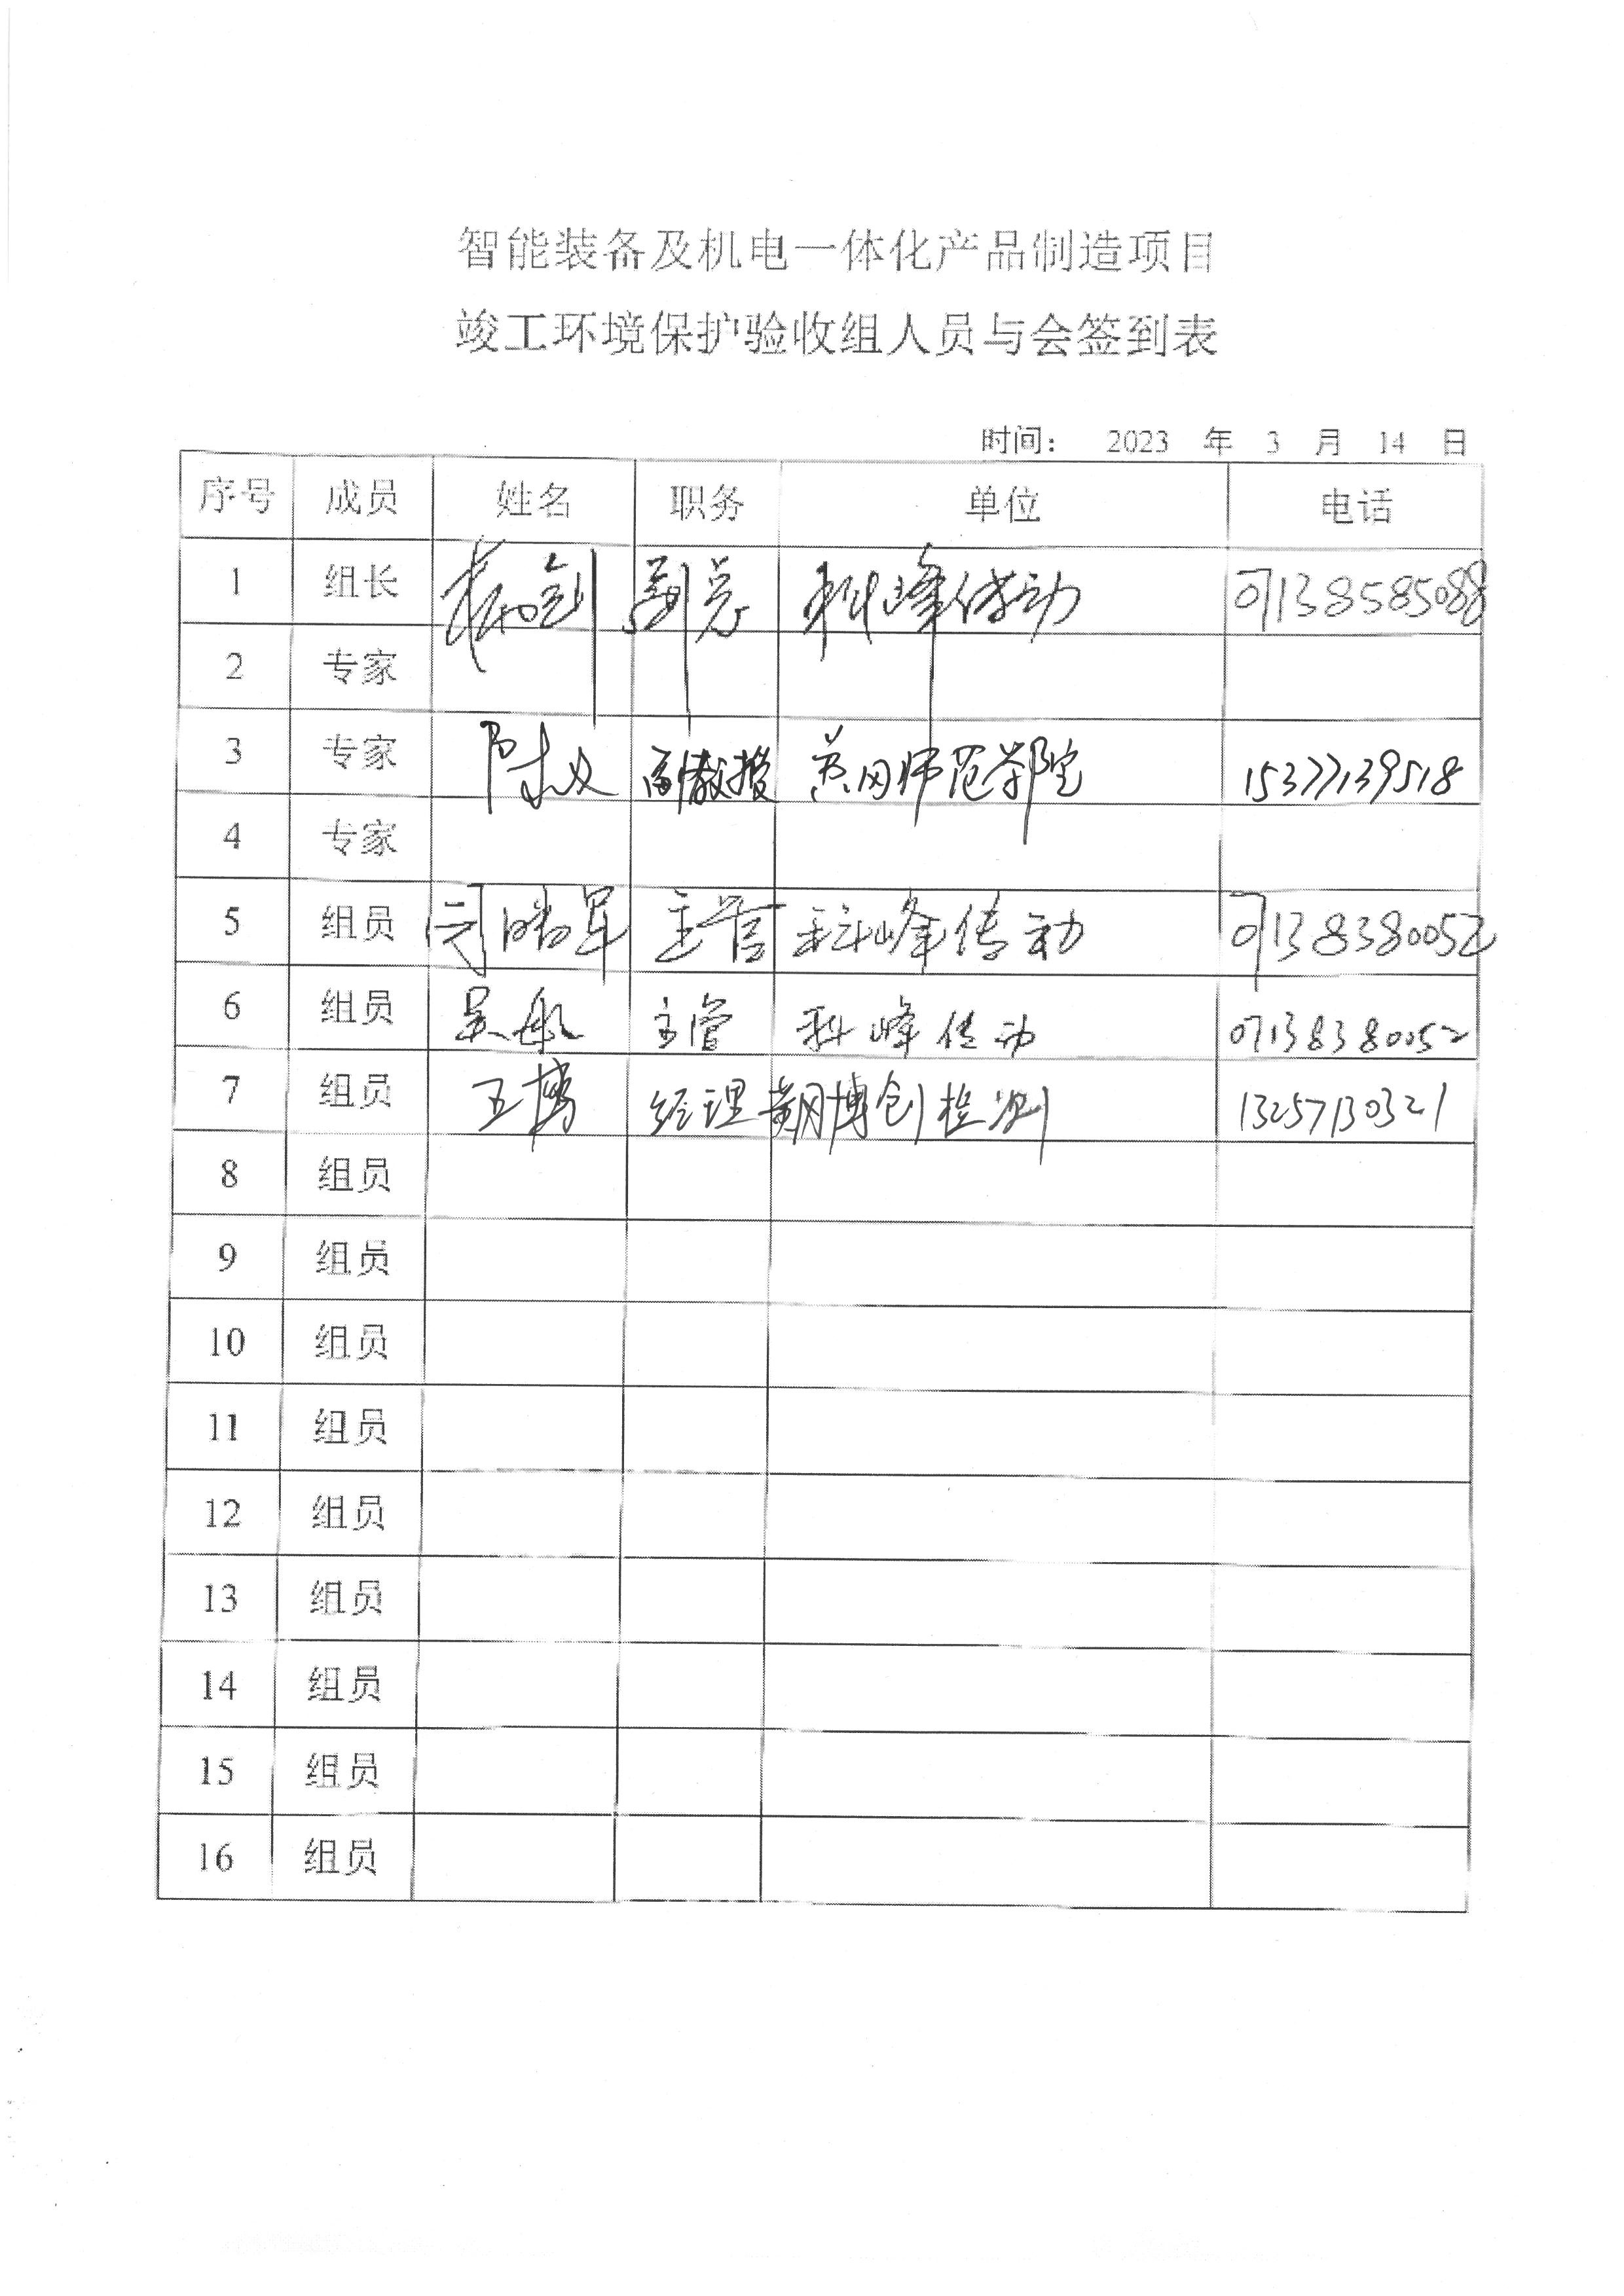 智能装备及机电一体化产品制造项目
竣工环境保护验收组人员与会签到表
时间： 2023 年 3 月 14 日
序号 成员 姓名 职务 单位 电话
1 组长 副总 科峰传动 07138585088
2 专家
3 专家 陈义 副教授 黄冈师范学院 15377139518
4 专家
5 组员 主管 科峰传动 07138380052
6 组员 吴敏 主管 科峰传动 07138380052
7 组员 王博 经理 黄冈博创检测 13257130321
8 组员
9 组员
10 组员
11 组员
12 组员
13 组员
14 组员
15 组员
16 组员